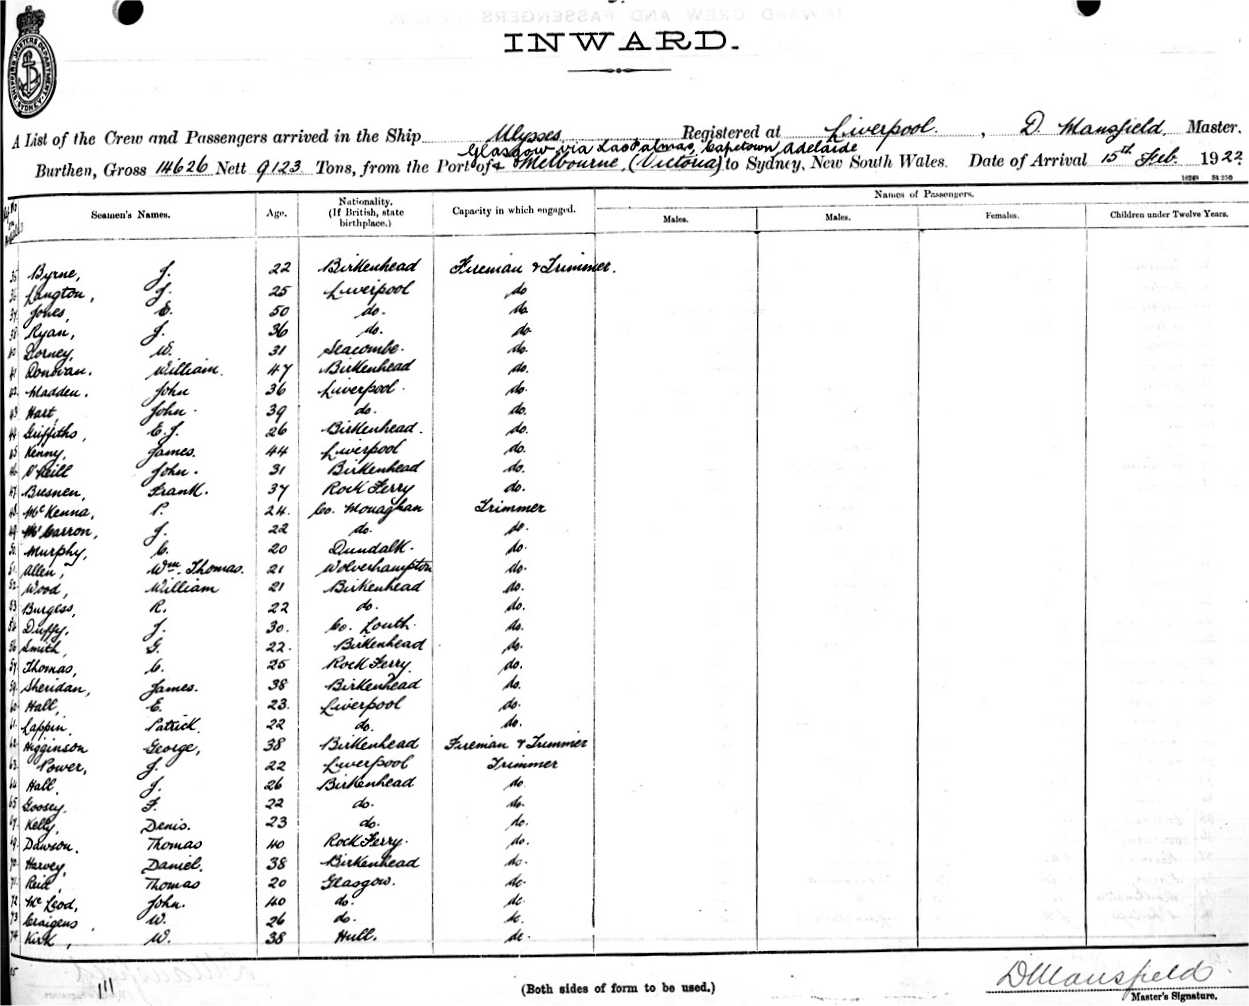 SHIPPING MASTERS DEPARTMENT SYDNEY
INWARD.
A List of the Crew and Passengers arrived in the Ship Ulysses Registered at Liverpool. , D. Mansfield, Master.
Glasgow via Las Palmas, Capetown, Adelaide
Burthen, Gross 14626 Nett 9123 Tons, from the Port of & Melbourne, (Victoria) to Sydney, New South Wales. Date of Arrival 15th Feb. 1922
Seamen's Names. Age. Nationality. (If British, state birthplace.) Capacity in which engaged. Names of Passengers.
Males. Males. Females. Children under Twelve Years.
35 Byrne, J. 22 Birkenhead Fireman & Trimmer.
36 Langton, J. 25 Liverpool do
37 Jones, E. 50 do. do
38 Ryan, J. 36 do. do
40 Dorney, W. 31 Seacombe. do.
41 Donovan. William. 47 Birkenhead do.
42. Madden. John 36 Liverpool. do.
43 Hart, John. 39 do. do.
44 Griffiths, E.J. 26 Birkenhead. do.
45 Kenny, James. 44 Liverpool do.
46 O'Neill John. 31 Birkenhead do.
47 Busnen, Frank. 37 Rock Ferry do.
48 McKenna, P. 24. Co. Monaghan Trimmer
49 McCarron, J. 22 do. do.
50. Murphy, C. 20 Dundalk. do.
51. Allen, Wm. Thomas. 21 Wolverhampton do.
52. Wood, William 21 Birkenhead do.
53 Burgess, R. 22 do. do.
54 Duffy, J. 30. Co. Louth. do.
56 Smith, G. 22. Birkenhead do.
57 Thomas, C. 25 Rock Ferry. do.
59 Sheridan, James. 38 Birkenhead do.
60 Hall, E. 23. Liverpool do.
61. Lappin. Patrick. 22 do. do.
62. Higginson George, 38 Birkenhead Fireman & Trimmer
63. Power, J. 22 Liverpool Trimmer
64 Hall, J. 26 Birkenhead do
65 Goosey. F. 22 do. do.
67 Kelly, Denis. 23 do. do.
69. Dawson. Thomas 40 Rock Ferry. do.
70. Harvey, Daniel. 38 Birkenhead do.
71. Reid, Thomas 20 Glasgow. do.
72 McLeod, John. 40 do. do
73 Craigens. W. 26 do. do.
74 Kirk, W. 38 Hull. do.
(Both sides of form to be used.)
D Mansfield
Master's Signature.